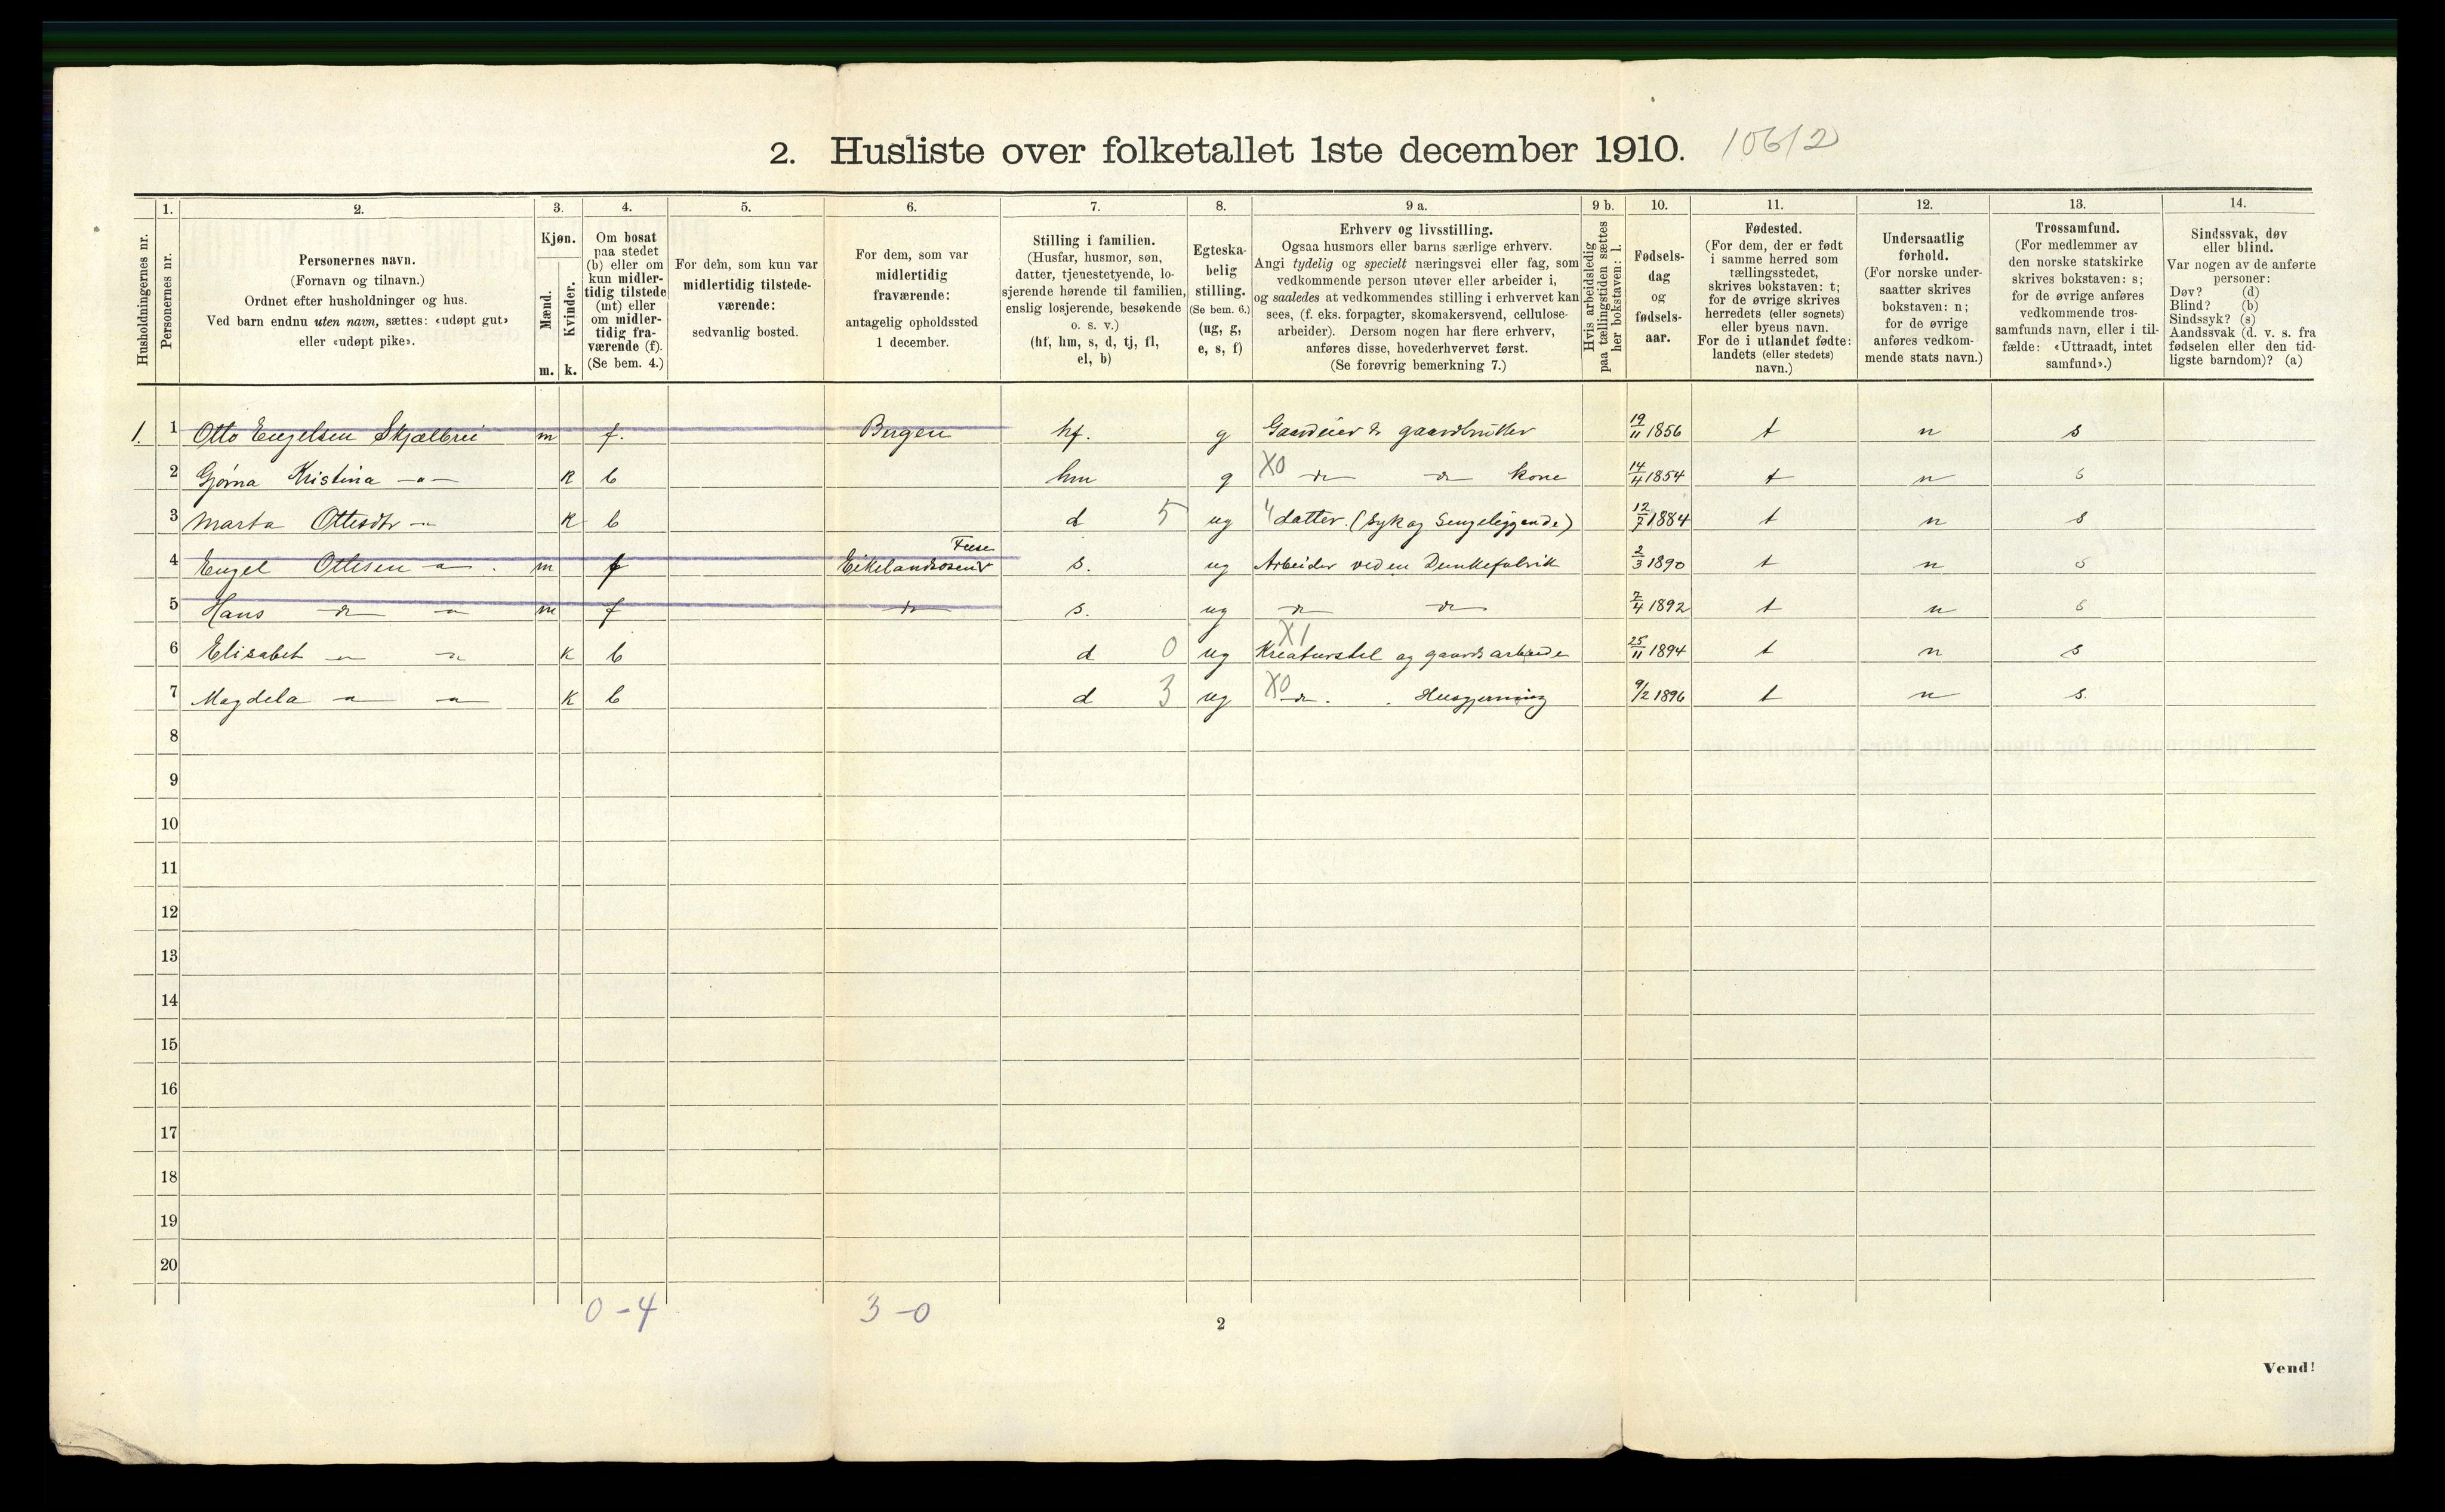 2. Husliste over folketallet 1ste december 1910. 10612
Husholdningernes nr.
1. Personernes nr.
2. Personernes navn.
(Fornavn og tilnavn.)
Ordnet efter husholdninger og hus.
Ved barn endnu uten navn, sættes: «udøpt gut»
eller «udøpt pike».
3. Kjøn.
Mænd. Kvinder.
m. k.
4. Om bosat
paa stedet
(b) eller om
kun midler-
tidig tilstede
(mt) eller
om midler-
tidig fra-
værende (f).
(Se bem. 4.)
5. For dem, som kun var
midlertidig tilstede-
værende:
sedvanlig bosted.
6. For dem, som var
midlertidig
fraværende:
antagelig opholdssted
1 december.
7. Stilling i familien.
(Husfar, husmor, søn,
datter, tjenestetyende, lo-
sjerende hørende til familien,
enslig losjerende, besøkende
o. s. v.)
(hf, hm, s, d, tj, fl,
el, b)
8. Egteska-
belig
stilling.
(Se bem. 6.)
(ug, g,
e, s, f)
9 a. Erhverv og livsstilling.
Ogsaa husmors eller barns særlige erhverv.
Angi tydelig og specielt næringsvei eller fag, som
vedkommende person utøver eller arbeider i,
og saaledes at vedkommendes stilling i erhvervet kan
sees, (f. eks. forpagter, skomakersvend, cellulose-
arbeider). Dersom nogen har flere erhverv,
anføres disse, hovederhvervet først.
(Se forøvrig bemerkning 7.)
9 b. Hvis arbeidsledig
paa tællingstiden sættes
her bokstaven: l.
10. Fødsels-
dag
og
fødsels-
aar.
11. Fødested.
(For dem, der er født
i samme herred som
tællingsstedet,
skrives bokstaven: t;
for de øvrige skrives
herredets (eller sognets)
eller byeus navn.
For de i utlandet fødte:
landets (eller stedets)
navn.)
12. Undersaatlig
forhold.
(For norske under-
saatter skrives
bokstaven: n;
for de øvrige
anføres vedkom-
mende stats navn.)
13. Trossamfund.
(For medlemmer av
den norske statskirke
skrives bokstaven: s;
for de øvrige anføres
vedkommende tros-
samfunds navn, eller i til-
fælde: «Uttraadt, intet
samfund».)
14. Sindssvak, døv
eller blind.
Var nogen av de anførte
personer:
Døv? (d)
Blind? (b)
Sindssyk? (s)
Aandssvak (d. v. s. fra
fødselen eller den tid-
ligste barndom)? (a)
1. 1 Otto Engelsen m f. Bergen hf. g Gaardeier & gaardbruker 19/11 1856 t n s
2 Gjørna Kristina -"- k b hm g X0 do do kone 14/4 1854 t n s
3 Marta Ottesdtr " k b d 5 ug datter (syk og sengeliggende) 12/7 1884 t n s
4 Engel Ottesen " m f Eikelandsosen s. ug Arbeider ved en 2/3 1890 t n s
5 Hans do " m f do s. ug do do 7/4 1892 t n s
6 Elisabet " " k b d 0 ug X1 Kreaturstel og gaardsarbeide 25/11 1894 t n s
7 Magdela " " k b d 3 ug X0 do. Husgjerning 9/2 1896 t n s.
8
9
10
11
12
13
14
15
16
17
18
19
20
0 - 4 3 - 0
2
Vend!